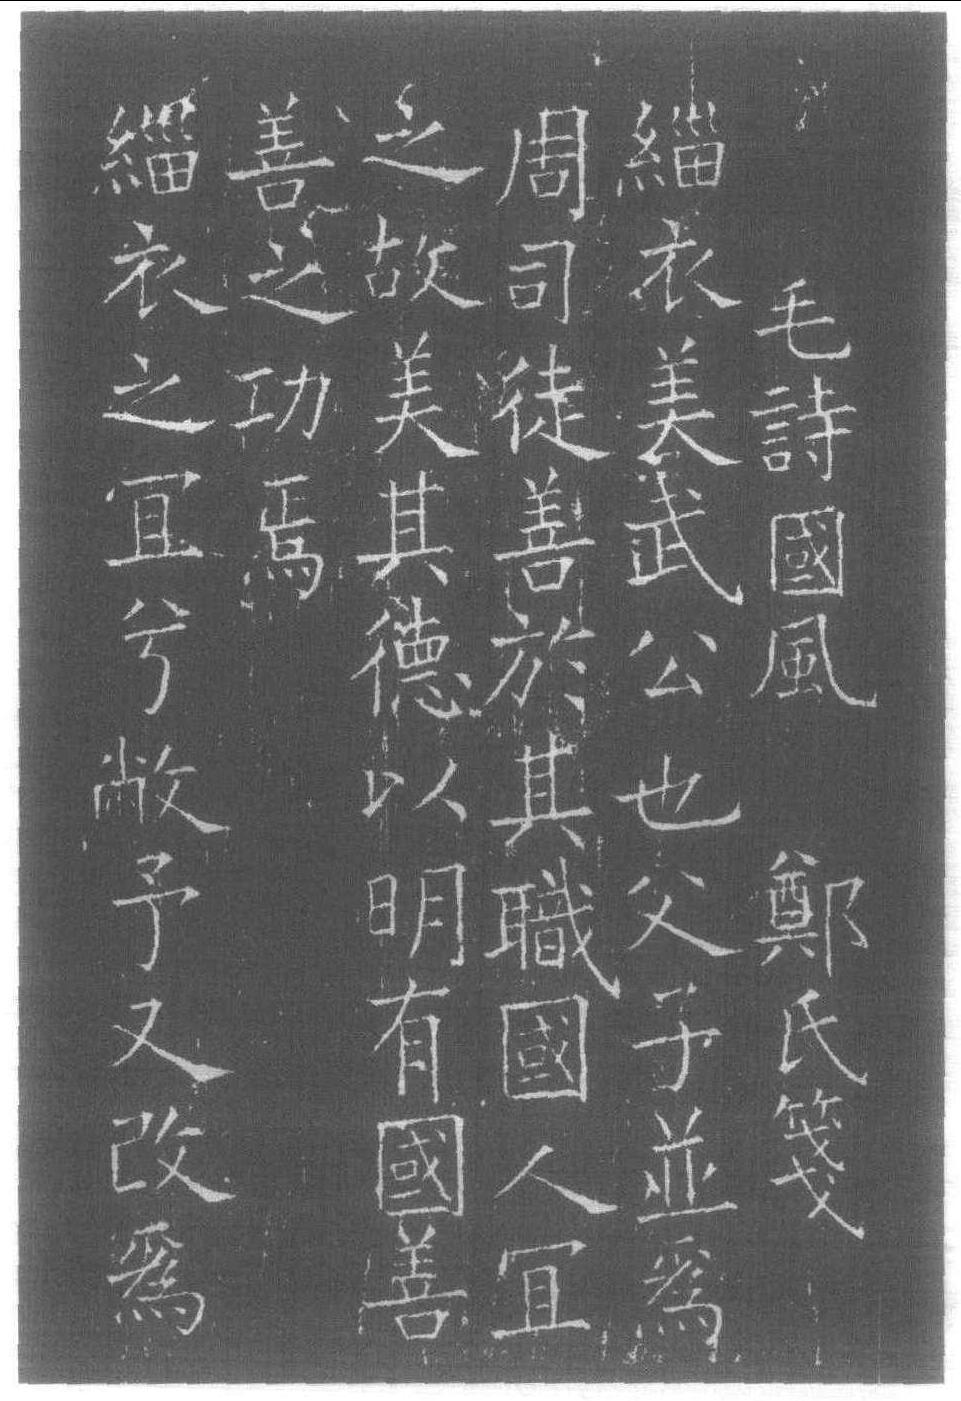 毛詩國風 鄭氏箋
緇衣美武公也父子並為
周司徒善於其職國人冝
之故美其德以明有國善
善之功焉
緇衣之冝兮敝予又改為